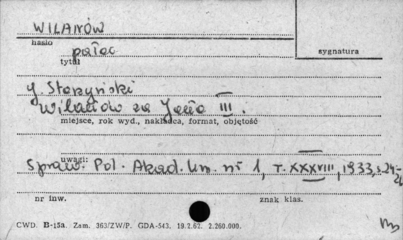 WILANÓW
hasło
pałac
tytuł
sygnatura
J. Starzyński
Wilanów za Jana III.
miejsce, rok wyd., nakładca, format, objętość
uwagi:
Spraw. Pol. Akad. Um. nr 1, T. XXXVIII, 1933, s. 24-
nr inw.
znak klas.
CWD. B-15a. Zam. 363/ZW/P. GDA-543. 19.2.62. 2.260.000.